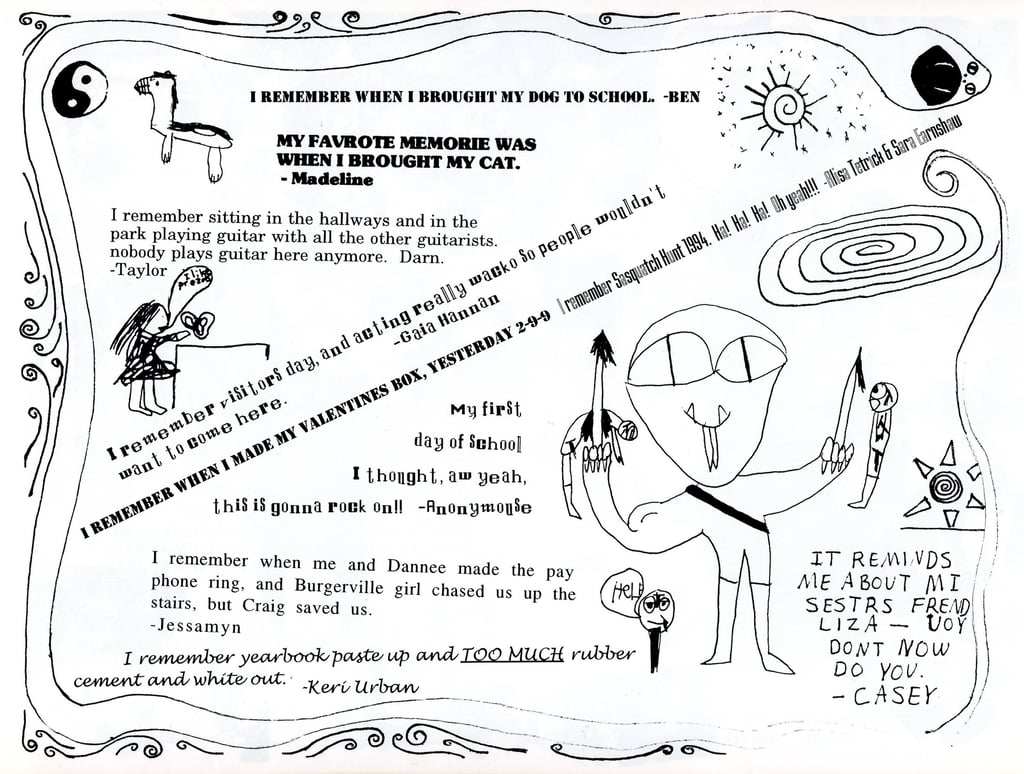 I REMEMBER WHEN I BROUGHT MY DOG TO SCHOOL. -BEN
MY FAVROTE MEMORIE WAS
WHEN I BROUGHT MY CAT.
- Madeline
I remember sitting in the hallways and in the
park playing guitar with all the other guitarists.
nobody plays guitar here anymore. Darn.
-Taylor
I like
pretzels
I remember visitors day, and acting really wacko so people wouldn't
want to come here.
-Gaia Hannan
I REMEMBER WHEN I MADE MY VALENTINES BOX, YESTERDAY 2-9-9
I remember Sasquatch Hunt 1994. Ha! Ha! Ha! Oh yeah!!! -Alisa Tetrick & Sara Earnshaw
My first
day of School
I thought, aw yeah,
this is gonna rock on!! -Anonymouse
I remember when me and Dannee made the pay
phone ring, and Burgerville girl chased us up the
stairs, but Craig saved us.
-Jessamyn
HELP
I remember yearbook paste up and TOO MUCH rubber
cement and white out. -Keri Urban
IT REMINDS
ME ABOUT MI
SESTRS FREND
LIZA — UOY
DONT NOW
DO YOU.
- CASEY